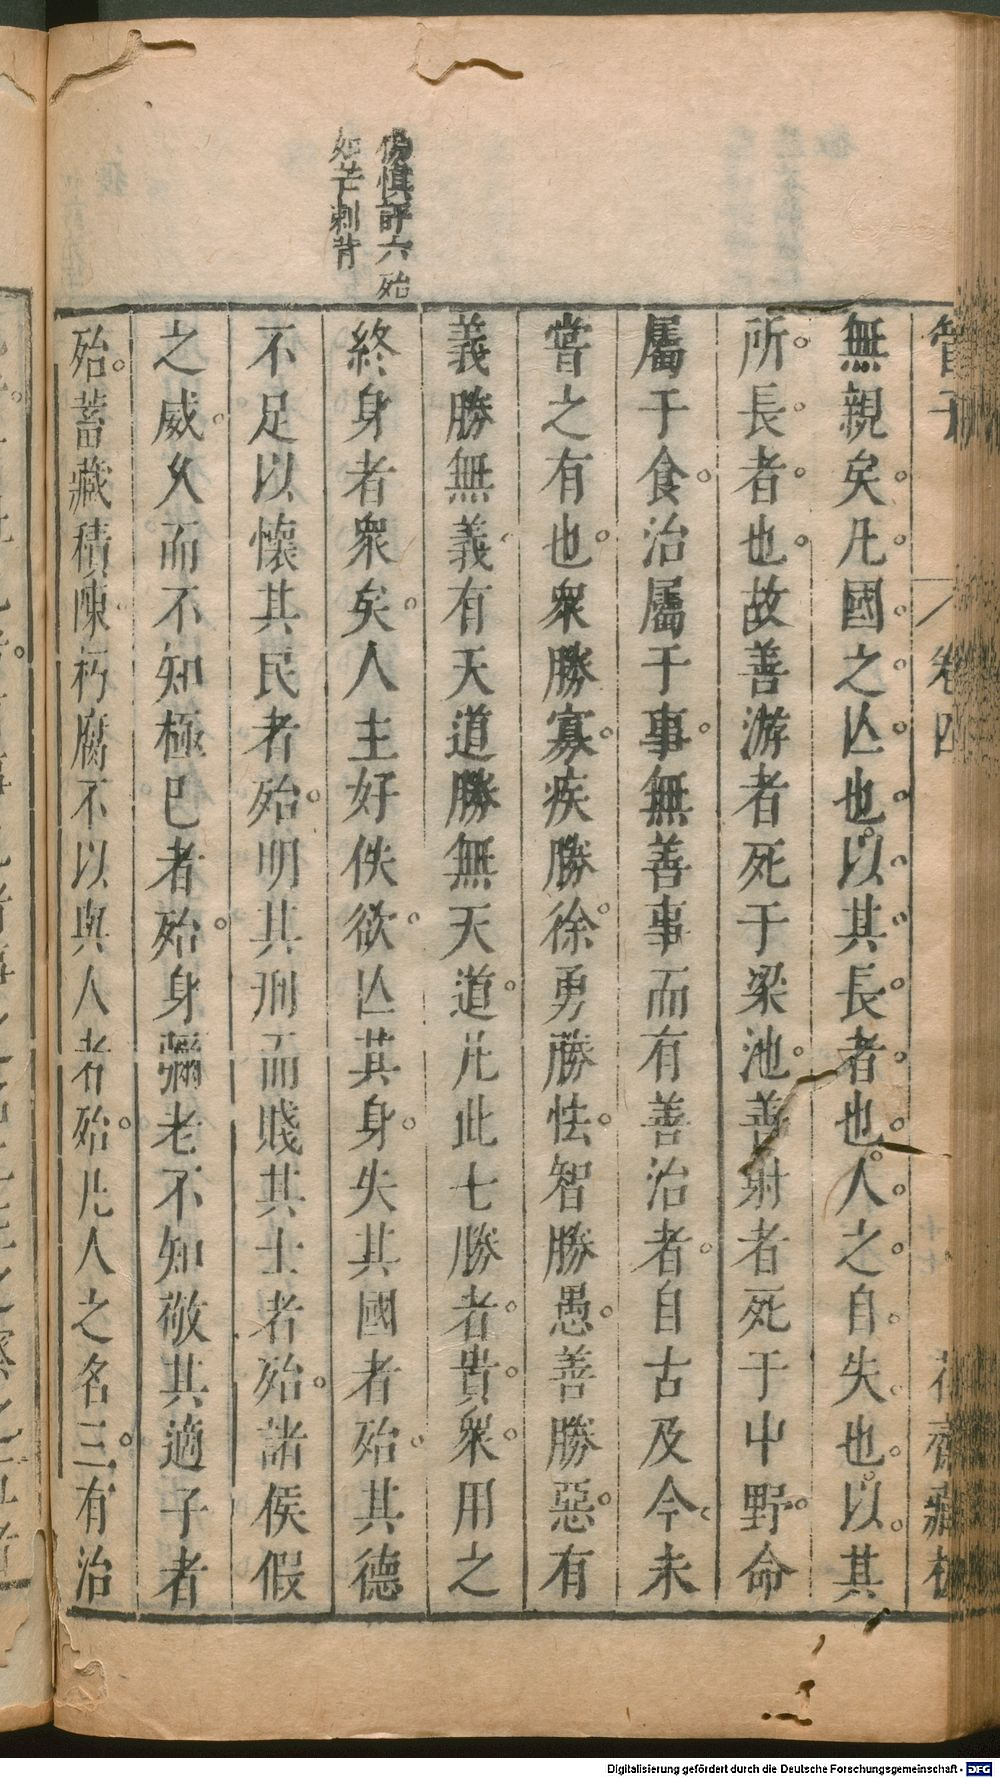 管子
卷四
十七
花齋藏板
楊慎評六殆
如芒刺背
無親矣凡國之亾也以其長者也人之自失也以其
所長者也故善游者死于梁池善射者死于中野命
屬于食治屬于事無善事而有善治者自古及今未
嘗之有也衆勝寡疾勝徐勇勝怯智勝愚善勝惡有
義勝無義有天道勝無天道凡此七勝者貴衆用之
終身者衆矣人主好佚欲亾其身失其國者殆其德
不足以懷其民者殆明其刑而賤其士者殆諸侯假
之威久而不知極已者殆身彌老不知敬其適子者
殆蓄藏積陳朽腐不以與人者殆凡人之名三有治
Digitalisierung gefördert durch die Deutsche Forschungsgemeinschaft - DFG